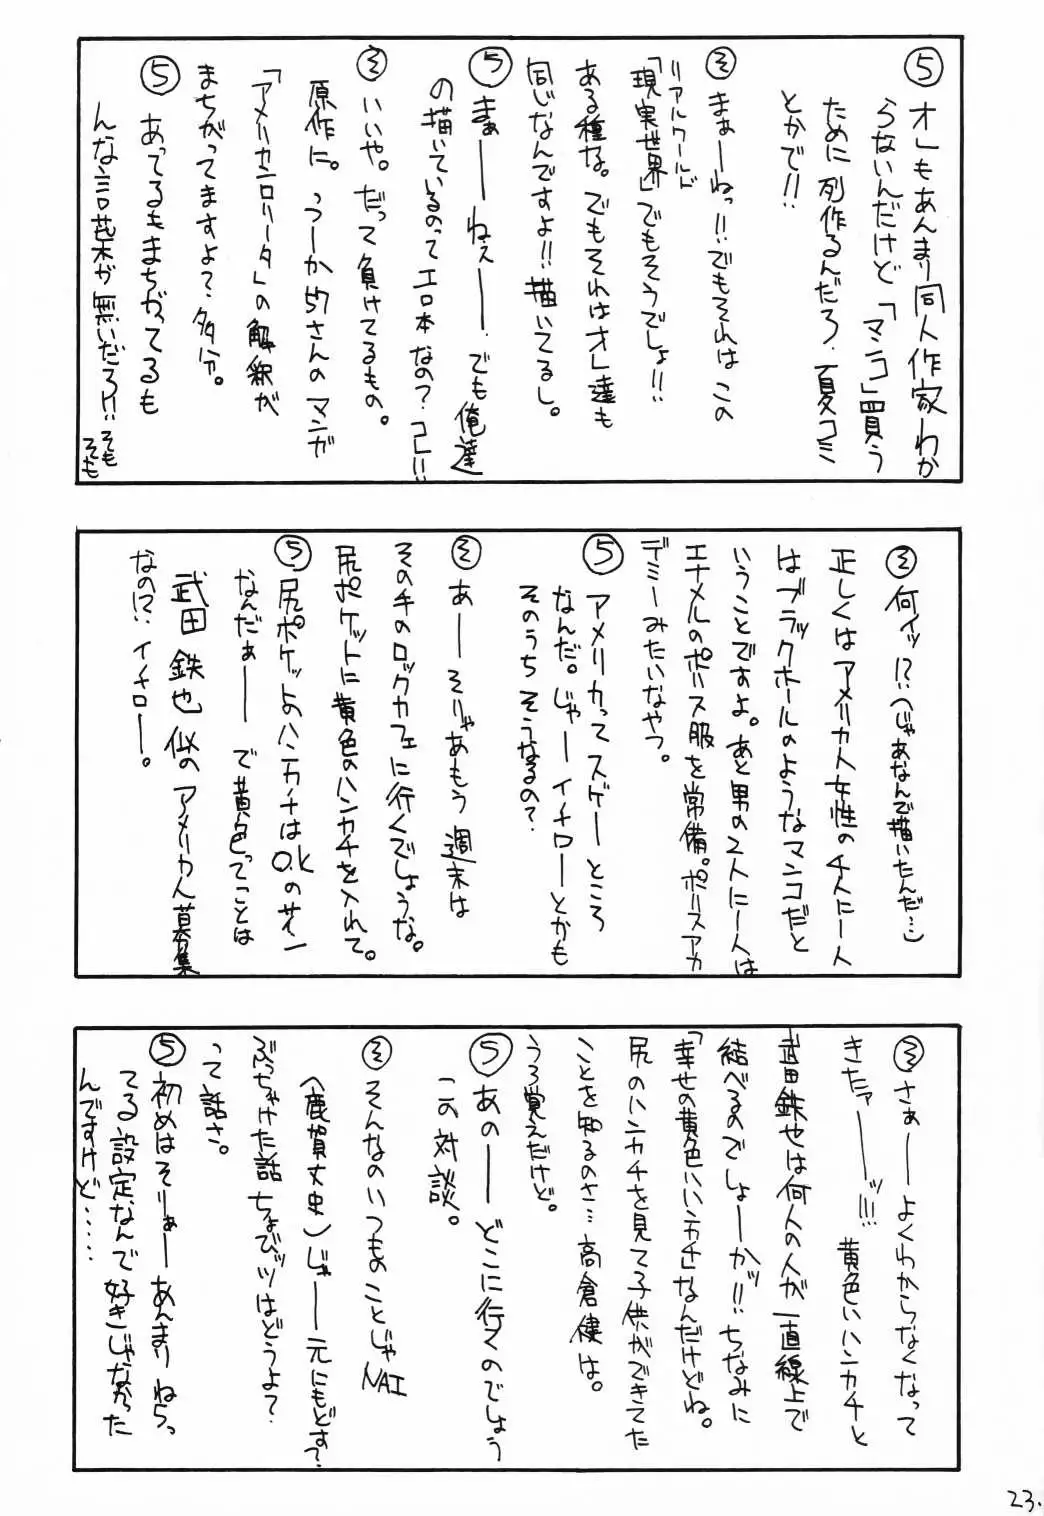 ⑤オレもあんまり同人作家わか
らないんだけど「マンコ」買う
ために列作るんだろ．夏コミ
とかで!!
㋞まぁーねっ!!でもそれはこの
リアルワールド
「現実世界」でもそうでしょ!!
ある種な。でもそれはオレ達も
同じなんですよ!!描いてるし。
⑤まぁ――ねぇ――．でも俺達
の描いているのってエロ本なの?コレ!!
㋞いいや。だって負けてるもの。
原作に。っつーか'57さんのマンガ
「アメリカンロリータ」の解釈が
まちがってますよ?多分。
⑤あってるもまちがってるも
んな言葉が無いだろ!!そも
そも
㋞何ィッ!?(じゃあなんで描いたんだ…)
正しくはアメリカ人女性の4人に一人
はブラックホールのようなマンコだと
いうことですよ。あと男の2人に一人は
エナメルのポリス服を常備。ポリスアカ
デミーみたいなやつ。
⑤アメリカってスゲーところ
なんだ。じゃーイチローとかも
そのうちそうなるの?
㋞あ――そりゃあもう週末は
その手のロックカフェに行くでしょうな。
尻ポケットに黄色のハンカチを入れて。
⑤尻ポケットのハンカチはO.Kのサイン
なんだぁ――で黄色ってことは
武田鉄也似のアメリカ人募集
なの!?イチロー。
㋞さぁ――よくわからなくなって
きたァ――ッ!!!黄色いハンカチと
武田鉄也は何人の人が一直線上で
結べるのでしょーかッ!!ちなみに
「幸せの黄色いハンカチ」なんだけどね。
尻のハンカチを見て子供ができてた
ことを知るのさ…高倉健は。
うろ覚えだけど。
⑤あの――どこに行くのでしょう
この対談。
㋞そんなのいつものことじゃNAI
(鹿賀丈史)じゃ――元にもどす?
ぶっちゃけた話ちょびッツはどうよ?
って話さ。
⑤初めはそりぁーあんまりねらっ
てる設定なんで好きじゃなかった
んですけど……
23.